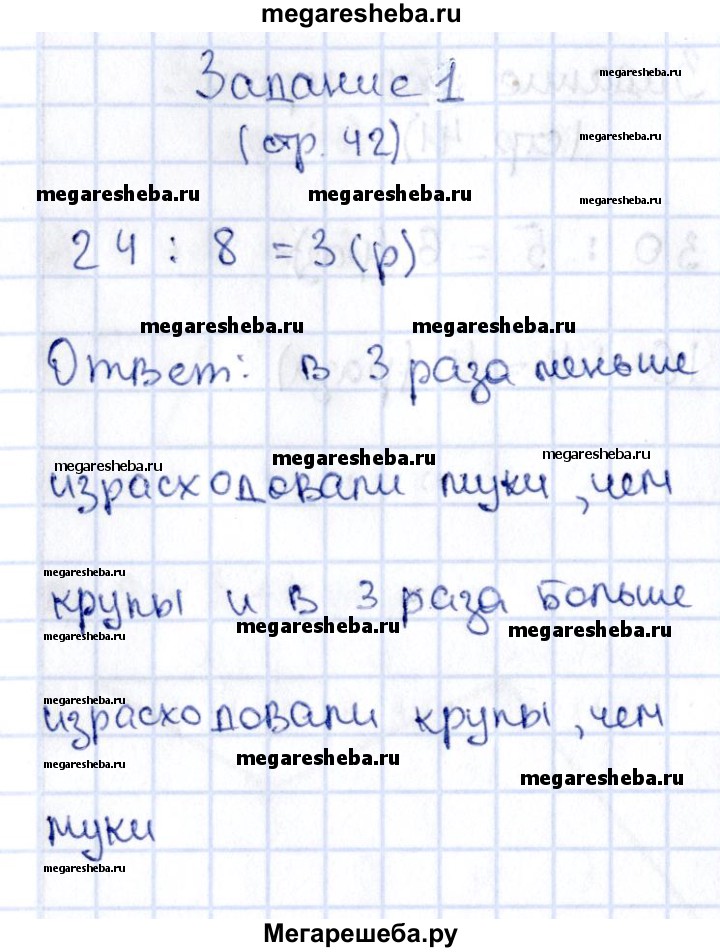 megaresheba.ru
Задание 1
megaresheba.ru
(стр. 42)
megaresheba.ru
megaresheba.ru megaresheba.ru
24 : 8 = 3 (р)
megaresheba.ru megaresheba.ru
Ответ: в 3 раза меньше
megaresheba.ru megaresheba.ru megaresheba.ru
израсходовали муки, чем
megaresheba.ru
крупы и в 3 раза больше
megaresheba.ru megaresheba.ru megaresheba.ru
megaresheba.ru
израсходовали крупы, чем
megaresheba.ru megaresheba.ru megaresheba.ru
муки
megaresheba.ru
Мегарешеба.ру